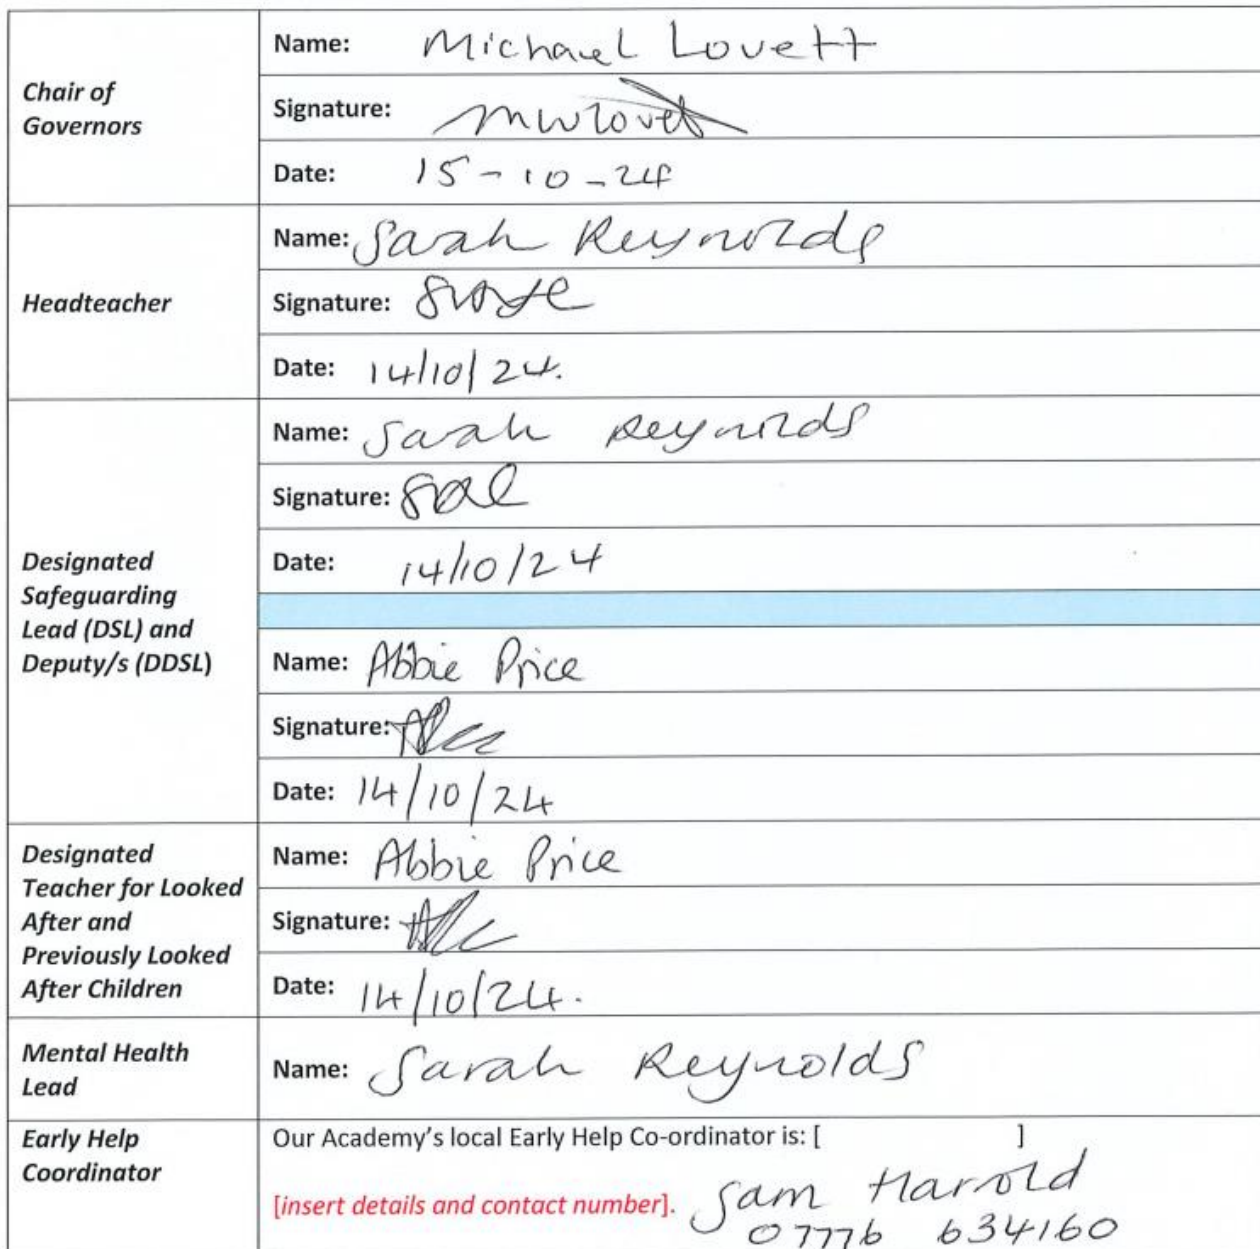 Chair of
Governors
Name: Michael Lovett
Signature: MWLovett
Date: 15-10-24
Headteacher
Name: Sarah Reynolds
Signature:
Date: 14/10/24.
Designated
Safeguarding
Lead (DSL) and
Deputy/s (DDSL)
Name: Sarah Reynolds
Signature:
Date: 14/10/24
Name: Abbie Price
Signature:
Date: 14/10/24
Designated
Teacher for Looked
After and
Previously Looked
After Children
Name: Abbie Price
Signature:
Date: 14/10/24.
Mental Health
Lead
Name: Sarah Reynolds
Early Help
Coordinator
Our Academy's local Early Help Co-ordinator is: [ ]
[insert details and contact number]. Sam Harold
07776 634160